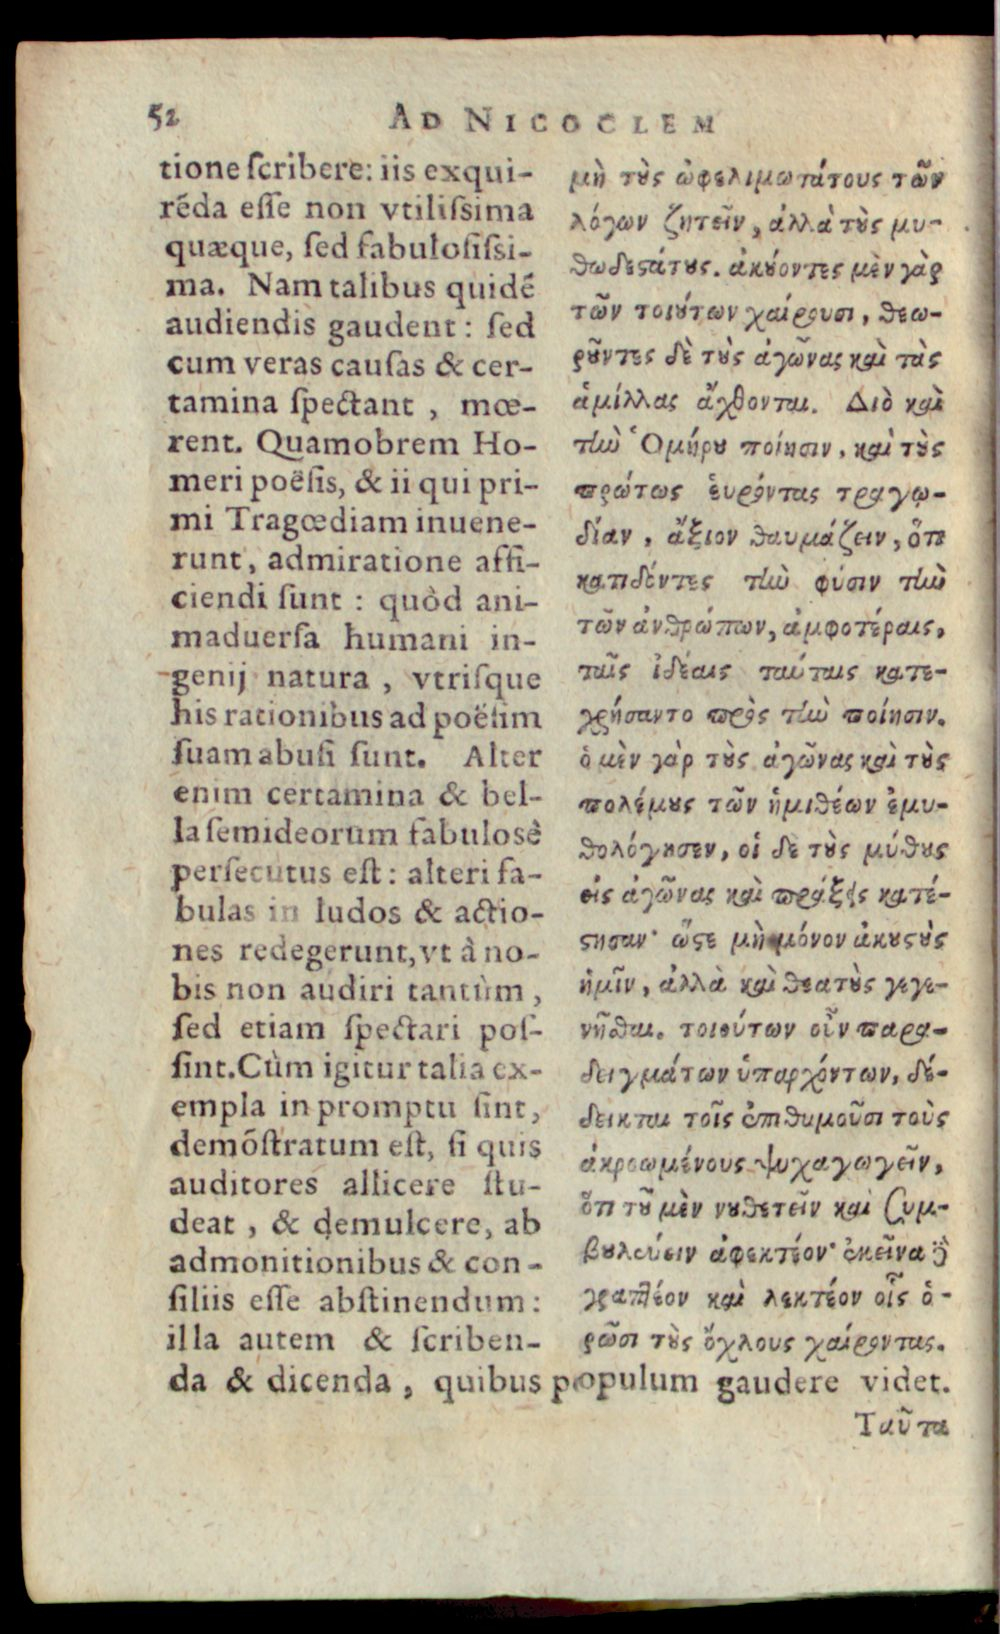 52 AD NICOCLEM
tione ſcribere: iis exqui-
rẽda eſſe non vtiliſsima
quæque, ſed fabuloſiſsi-
ma. Nam talibus quidẽ
audiendis gaudent: ſed
cum veras cauſas & cer-
tamina ſpectant, mœ-
rent. Quamobrem Ho-
meri poëſis, & ii qui pri-
mi Tragœdiam inuene-
runt, admiratione affi-
ciendi ſunt: quòd ani-
maduerſa humani in-
genij natura, vtriſque
his rationibus ad poëſim
ſuam abuſi ſunt. Alter
enim certamina & bel-
la ſemideorum fabuloſè
perſecutus eſt: alteri fa-
bulas in ludos & actio-
nes redegerunt, vt à no-
bis non audiri tantùm,
ſed etiam ſpectari poſ-
ſint. Cùm igitur talia ex-
empla in promptu ſint,
demõſtratum eſt, ſi quis
auditores allicere ſtu-
deat, & demulcere, ab
admonitionibus & con-
ſiliis eſſe abſtinendum:
illa autem & ſcriben-
da & dicenda, quibus populum gaudere videt.
μὴ τοὺς ὠφελιμωτάτους τῶν
λόγων ζητεῖν, ἀλλὰ τοὺς μυ-
θωδεστάτους. ἀκούοντες μὲν γὰρ
τῶν τοιούτων χαίρουσι, θεω-
ροῦντες δὲ τοὺς ἀγῶνας καὶ τὰς
ἁμίλλας ἄχθονται. Διὸ καὶ
τὴν Ὁμήρου ποίησιν, καὶ τοὺς
πρώτως εὑρόντας τραγῳ-
δίαν, ἄξιον θαυμάζειν, ὅτι
κατιδόντες τὴν φύσιν τὴν
τῶν ἀνθρώπων, ἀμφοτέραις,
ταῖς ἰδέαις ταύταις κατε-
χρήσαντο πρὸς τὴν ποίησιν.
ὁ μὲν γὰρ τοὺς ἀγῶνας καὶ τοὺς
πολέμους τῶν ἡμιθέων ἐμυ-
θολόγησεν, οἱ δὲ τοὺς μύθους
εἰς ἀγῶνας καὶ πράξεις κατέ-
στησαν· ὥστε μὴ μόνον ἀκουστοὺς
ἡμῖν, ἀλλὰ καὶ θεατοὺς γεγε-
νῆσθαι. τοιούτων οὖν παρα-
δειγμάτων ὑπαρχόντων, δέ-
δεικται τοῖς ἐπιθυμοῦσι τοὺς
ἀκροωμένους ψυχαγωγεῖν,
ὅτι τοῦ μὲν νουθετεῖν καὶ συμ-
βουλεύειν ἀφεκτέον· ἐκεῖνα δὲ
γραπτέον καὶ λεκτέον οἷς ὁ-
ρῶσι τοὺς ὄχλους χαίροντας.
Ταῦτα